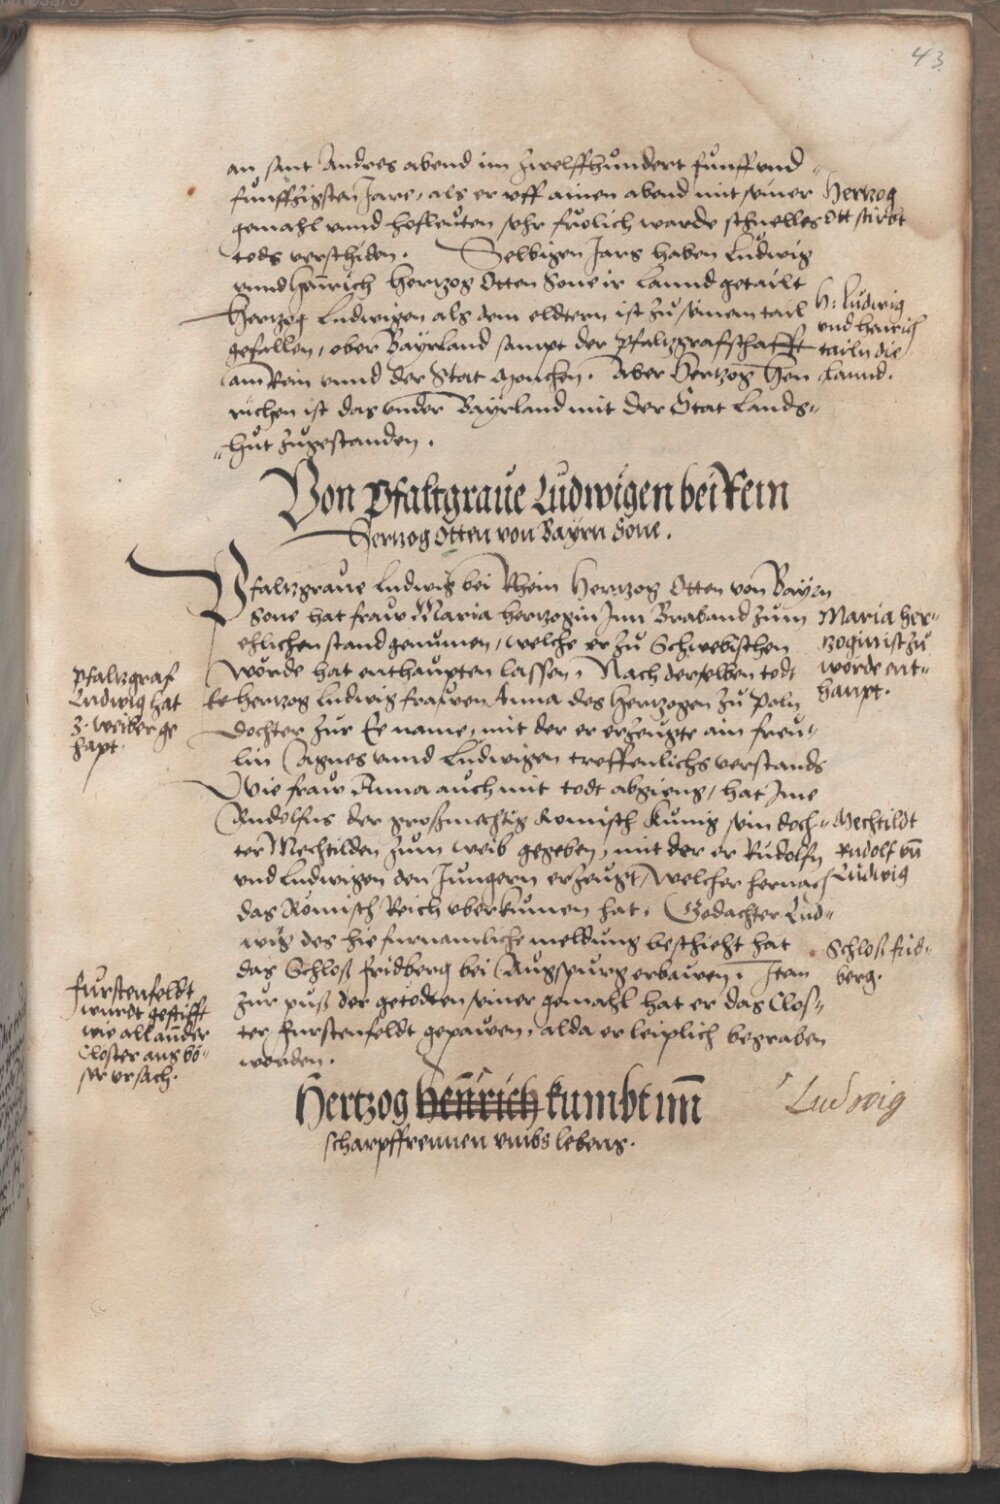 43
an sant Andres abend im zwelffhundert funff vnd
funffzigsten Jare, als er vff ainen abend mit seiner
gemahl vnnd hofleuten sehr frolich warde schnelles
tods verschiden. Selbigen Jars haben Ludwig
vnnd Hainrich Hertzog Otten Sone ir Lannd getailt
Hertzog Ludwigen als dem eldtern ist zu seinem tail
gefallen, ober Bayrland sampt der pfaltzgrafschafft
am Rein vnnd der Stat Monchen. Aber Hertzog Hen
richen ist das vnder Bayrland mit der Stat Lands"
"hut zugestanden.
Hertzog
Ott stirbt
H: Ludwig
vnd henrich
tailn die
Lannd.
Von Pfaltzgraue Ludwigen bei Rein
Hertzog Otten von Bayrn Sone.
Pfaltzgraue Ludwig bei Rhein Hertzog Otten von Bayrn
Sone hat fraw Maria Hertzogin Inn Braband zum
ehlichen stand genumen, welche er zu Schwebischen
Wörde hat enthaupten lassen. Nach derselben todt
hertzog Ludwig frawen Anna des Hertzogen zu Poln
dochter zur Ee name, mit der er erzeugte ain freu"
lin Agnes vnnd Ludwigen treffenlichs verstands
Wie fraw Anna auch mit todt abgieng, hat Ime
Rudolfus der großmechtig Romisch Kunig sein doch"
ter Mechtilden zum weib gegeben, mit der er Rudolfn
vnd Ludwigen den Jungern erzeugt, welcher hernach
das Römisch Reich vberkumen hat. Gedachter Lud"
wig des hie furnamliche meldung beschieht hat
das Schloß fridberg bei Augspurg erbawen. Item
zur puß der getödten seiner gemahl hat er das Clos"
ter furstenfeldt gepawen, alda er leiplich begraben
worden.
Maria her"
zogin ist zu
wörde ent"
haupt.
pfaltzgraf
Ludwig hat
3. weiber ge
hapt.
Mechtildt
Rudolf vn̄
Ludwig
Schloß frid"
berg.
furstenfeldt
wurdt gestifft
wie all ander
Closter aus bö"
ser vrsach.
Hertzog Henrich kumbt im̄
Ludwig
scharpffrennen vmbs leben.